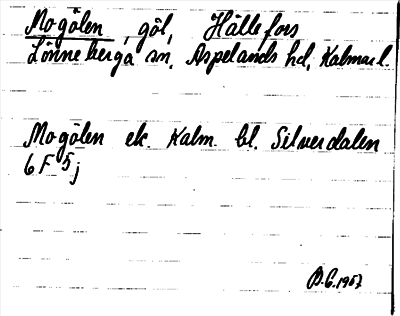 Mogölen, göl, Hällefors
Lönneberga sn. Aspelands hd, Kalmar l.
Mogölen ek. Kalm. bl. Silverdalen
6 F 5 j
1957